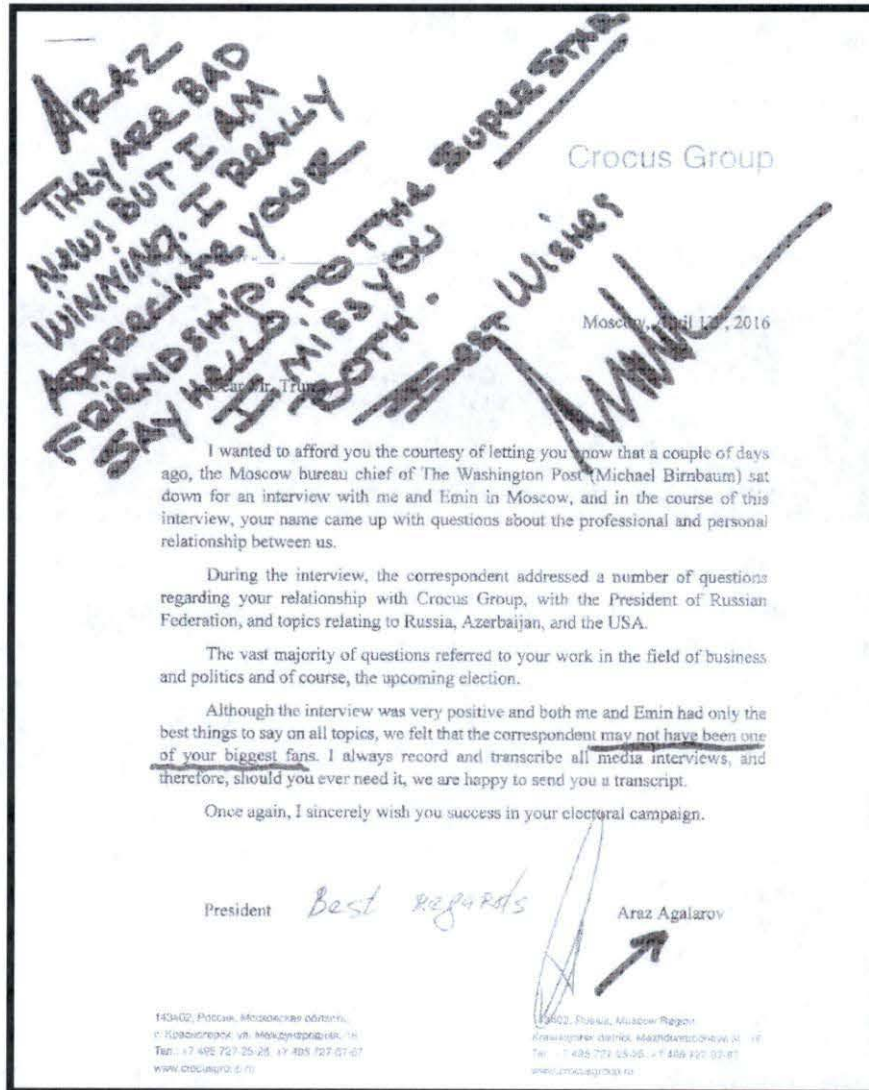 ARAZ
THEY ARE BAD
NEWS BUT I AM
WINNING. I REALLY
APPRECIATE YOUR
FRIENDSHIP.
SAY HELLO TO THE SUPER STAR
I MISS YOU
BOTH.
Best Wishes
Crocus Group
Moscow, April 2016
Dear Mr. Trump
I wanted to afford you the courtesy of letting you know that a couple of days
ago, the Moscow bureau chief of The Washington Post (Michael Birnbaum) sat
down for an interview with me and Emin in Moscow, and in the course of this
interview, your name came up with questions about the professional and personal
relationship between us.
During the interview, the correspondent addressed a number of questions
regarding your relationship with Crocus Group, with the President of Russian
Federation, and topics relating to Russia, Azerbaijan, and the USA.
The vast majority of questions referred to your work in the field of business
and politics and of course, the upcoming election.
Although the interview was very positive and both me and Emin had only the
best things to say on all topics, we felt that the correspondent may not have been one
of your biggest fans. I always record and transcribe all media interviews, and
therefore, should you ever need it, we are happy to send you a transcript.
Once again, I sincerely wish you success in your electoral campaign.
President Best regards Araz Agalarov
143402, Россия, Московская область,
г. Красногорск, ул. Международная,
Тел.: +7 495 727-25-26, +7 495 727-
143402, Russia, Moscow Region
Krasnogorsk district,